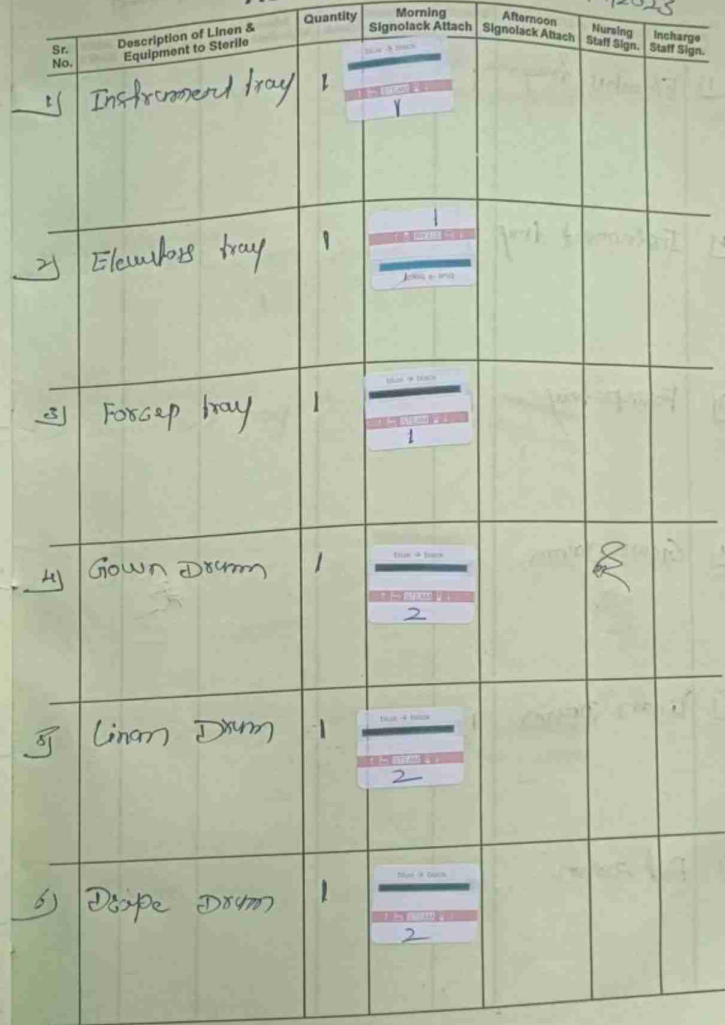 2023
Sr. No.
Description of Linen & Equipment to Sterile
Quantity
Morning Signolack Attach
Afternoon Signolack Attach
Nursing Staff Sign.
Incharge Staff Sign.
1) Instrument tray 1
blue → black
STEAM
2) Elevators tray 1
1
STEAM
blue → black
3) Forcep tray 1
blue → black
STEAM
1
4) Gown Drum 1
blue → black
STEAM
2
5) Linan Drum 1
blue → black
STEAM
2
6) Drape Drum 1
blue → black
STEAM
2